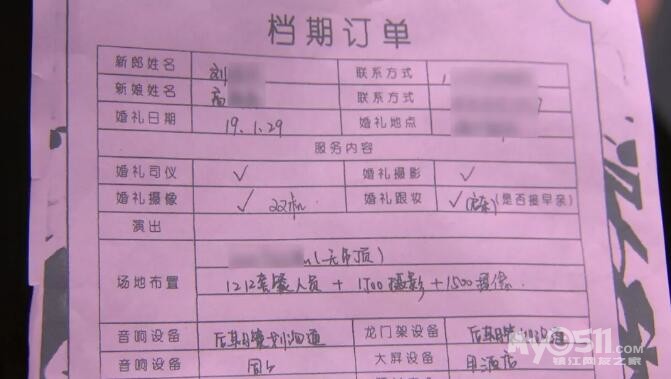 档期订单
新郎姓名 刘 联系方式
新娘姓名 高 联系方式
婚礼日期 19.1.29 婚礼地点
服务内容
婚礼司仪 ✓ 婚礼摄影 ✓
婚礼摄像 ✓ 双机 婚礼跟妆 ✓ (是否接早亲)
演出
(无吊顶)
场地布置 1212套餐人员 + 1700摄影 + 1500摄像
音响设备 后期策划沟通 龙门架设备 后期策划沟通
音响设备 同上 大屏设备 自酒店
AY0511.com
镇江网友之家